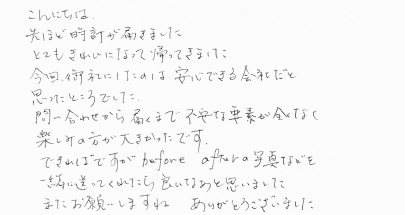 こんにちは。
先ほど時計が届きました
とてもきれいになって帰ってきました
今回御社にしたのは安心できる会社だと
思ったところでした.
問い合わせから届くまで不安な要素が全くなく
楽しみの方が大きかったです.
できればですがbefore afterの写真などを
一緒に送ってくれたら良いなあと思いました
またお願いしますね ありがとうございました